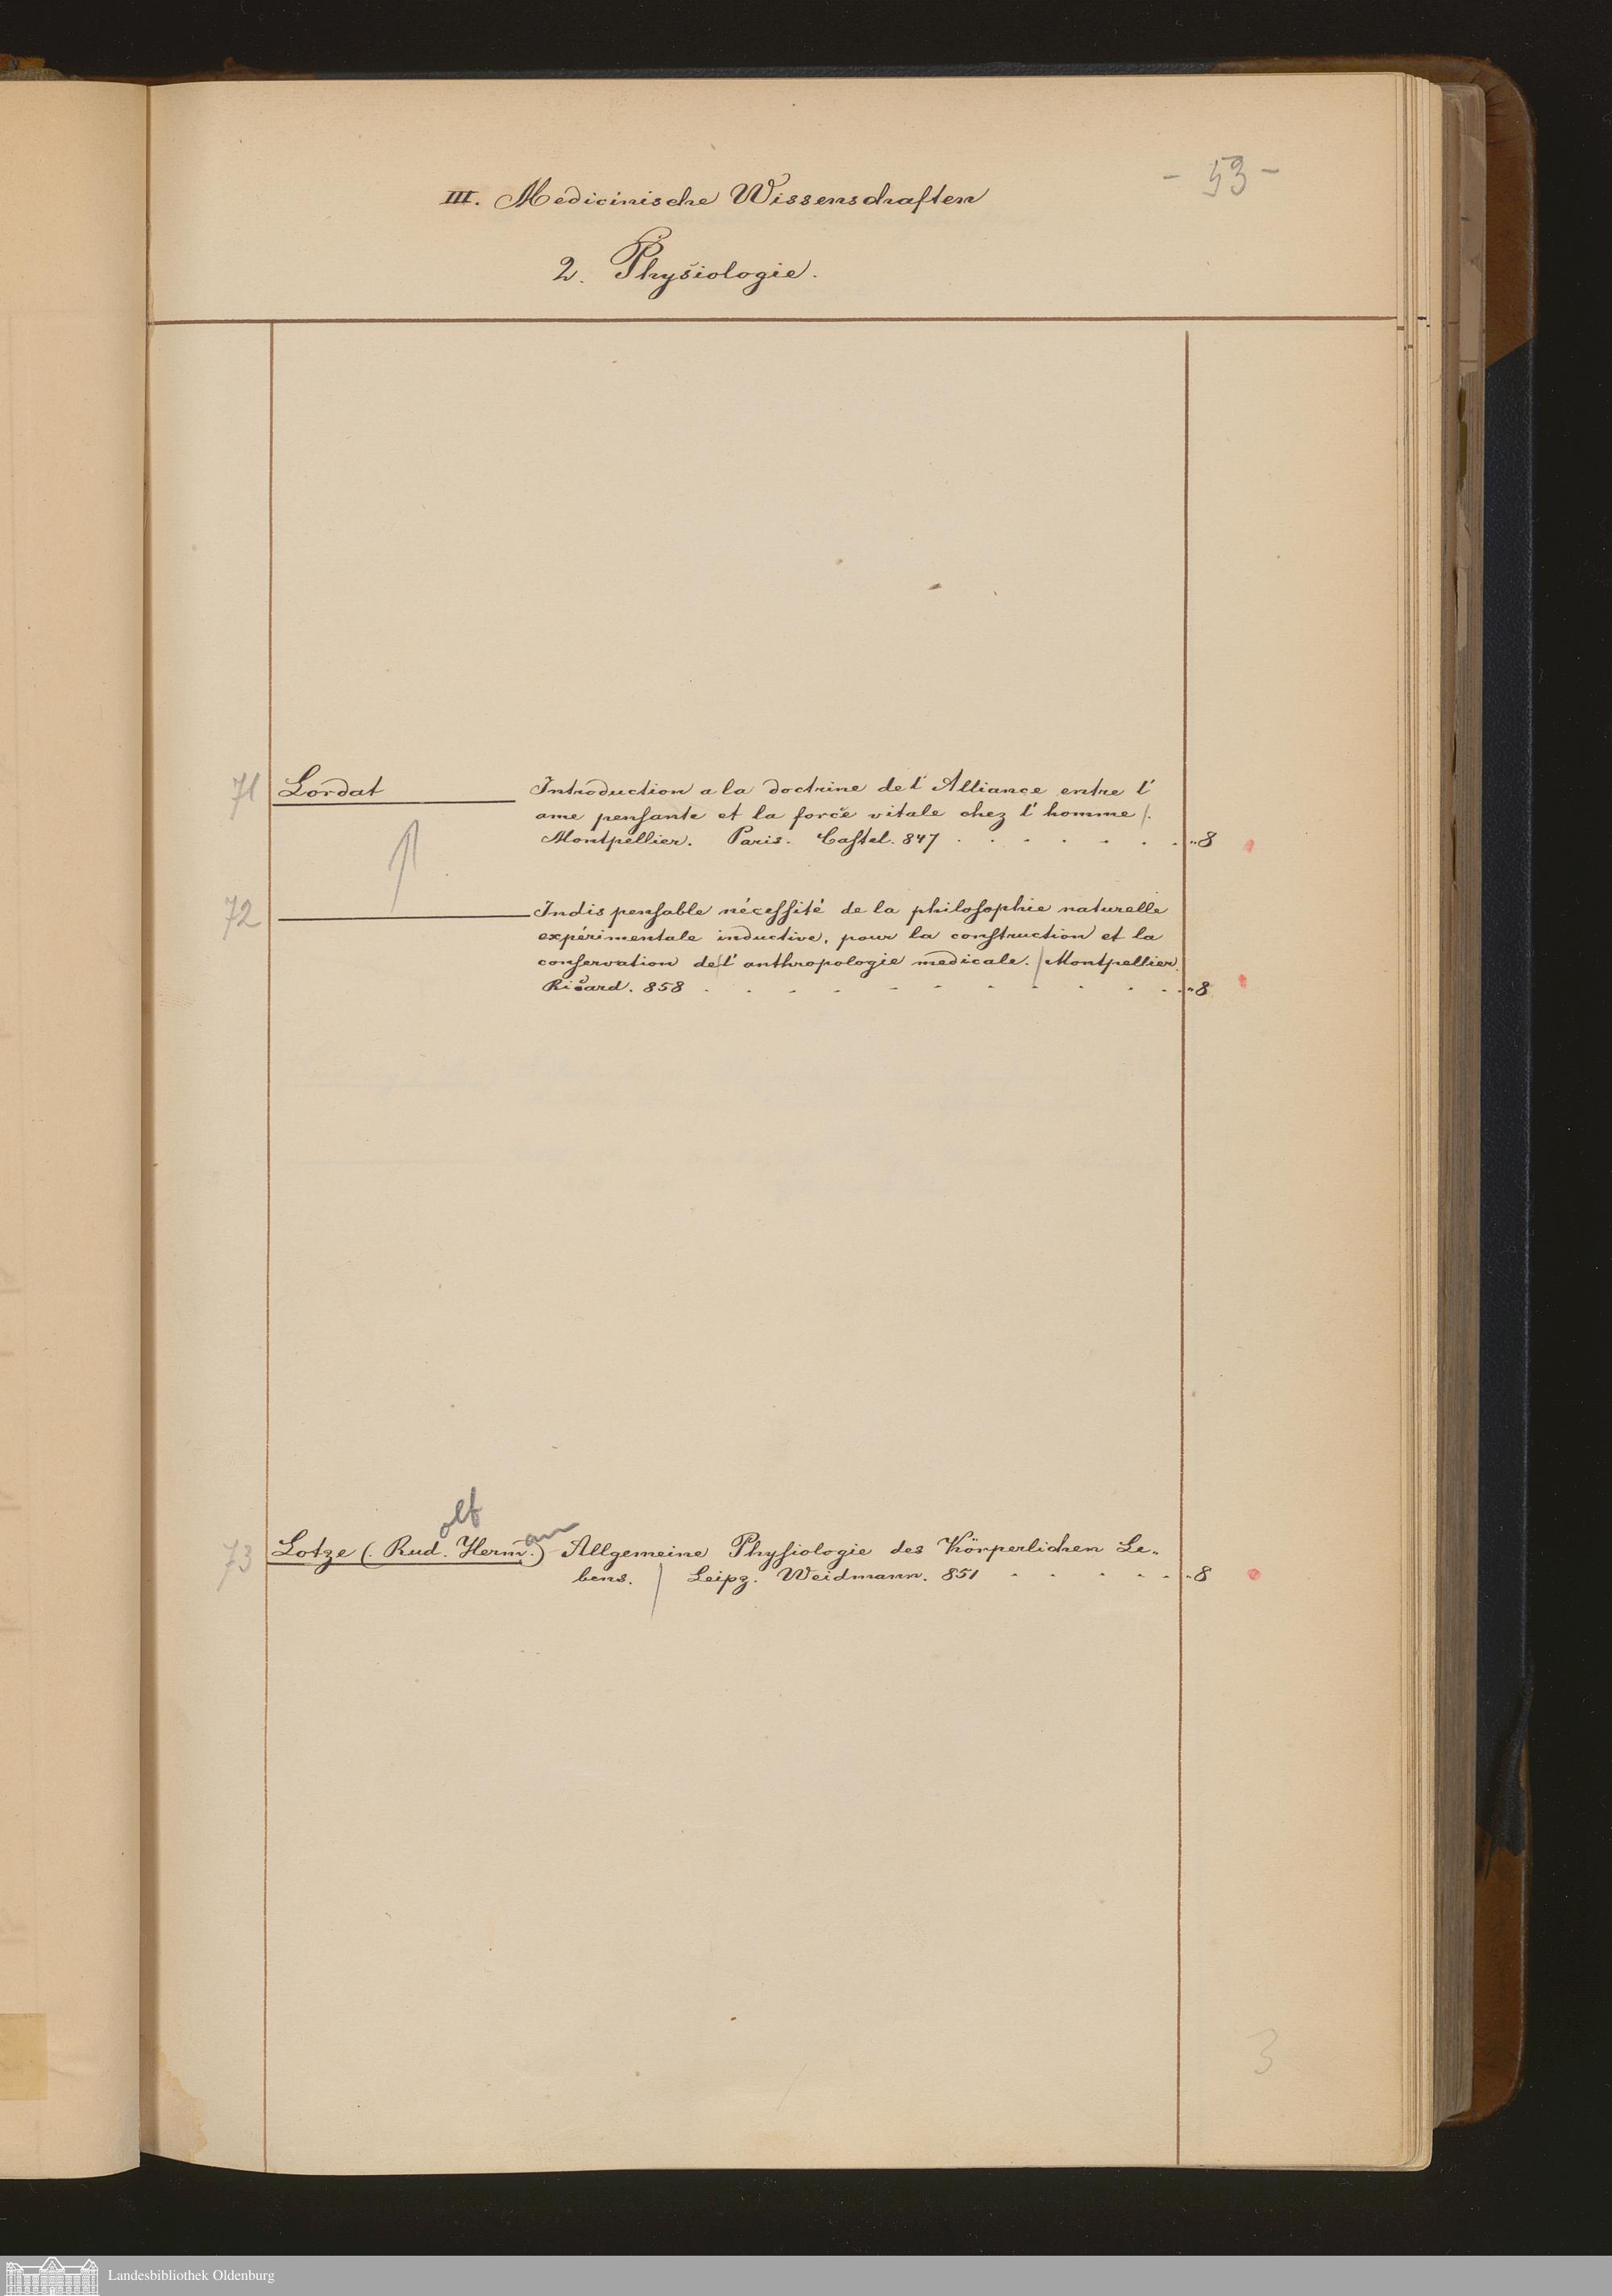 - 53 -
III. Medicinische Wissenschaften
2. Physiologie.
71 Lordat Introduction a la doctrine de l' Alliance entre l'
ame pensante et la force vitale chez l' homme /.
Montpellier. Paris. Castel. 847 . . . . . . . „8
72 Indispensable nécessité de la philosophie naturelle
expérimentale inductive, pour la construction et la
conservation de l' anthropologie medicale. / Montpellier.
Ricard. 858 . . . . . . . . . . . „8
olf an
73 Lotze (. Rud. Herm̄.) Allgemeine Physiologie des Körperlichen Le„
bens. / Leipz. Weidmann. 851 . . . . . „8
3
Landesbibliothek Oldenburg